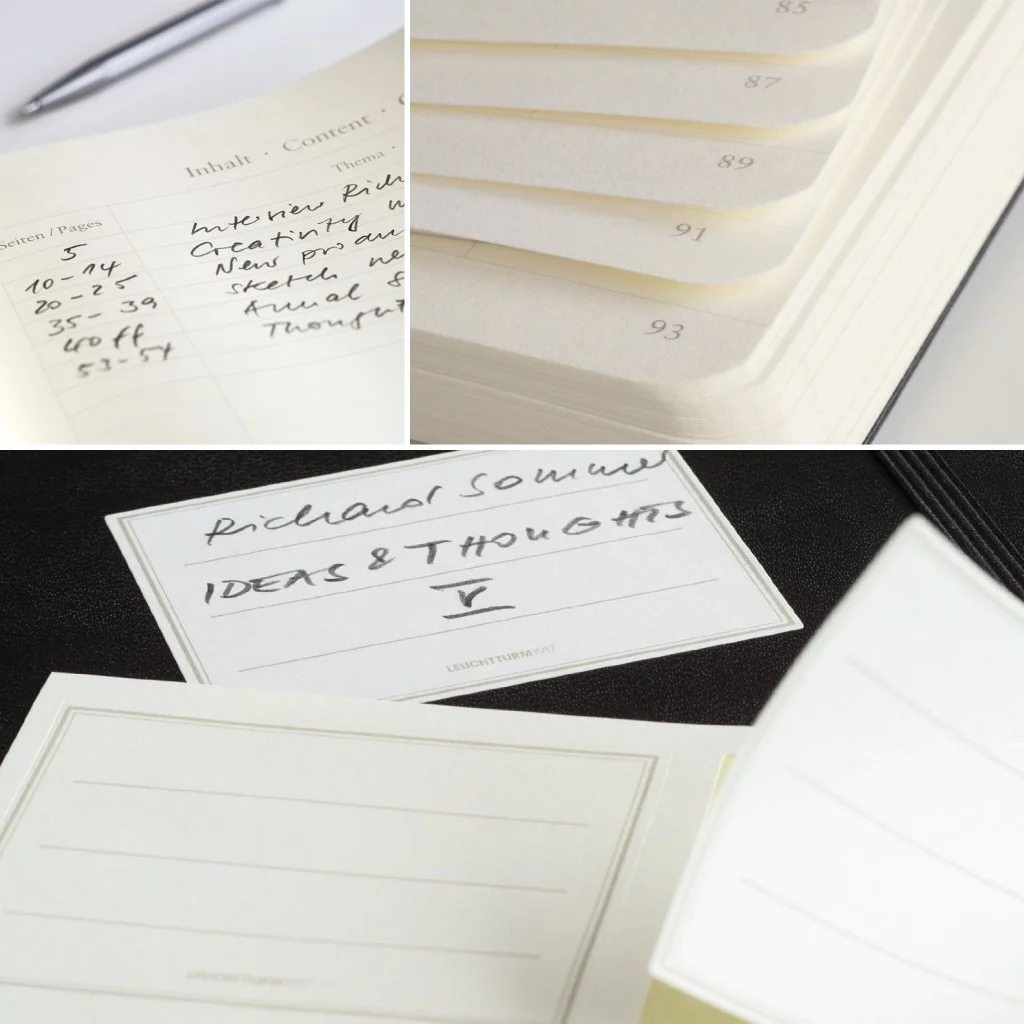 Inhalt · Content ·
Thema ·
Seiten / Pages
5 Interview Rich
10-14 Creativity
20-25 New produ
35-39 Sketch ne
40 ff Annual
53-54 Thought
85
87
89
91
93
Richard Sommer
IDEAS & THOUGHTS
V
LEUCHTTURM1917
LEUCHTTURM